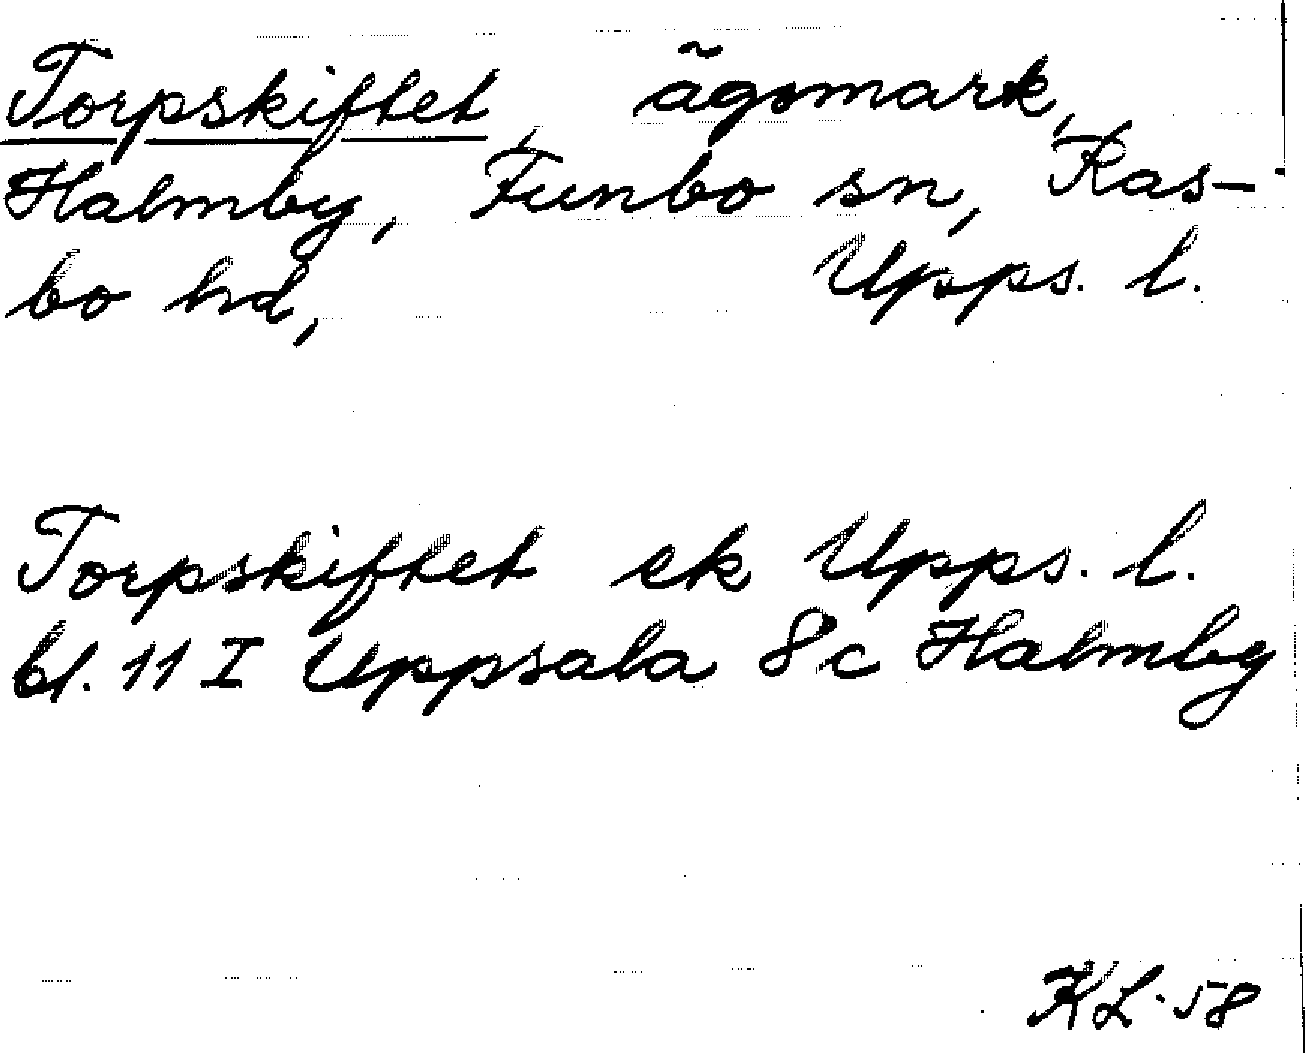 Torpskiftet, ägomark,
Halmby, Funbo sn, Ras-
bo hd, Upps. l.
Torpskiftet ek Upps. l.
bl. 11 I Uppsala 8c Halmby
KL. 58